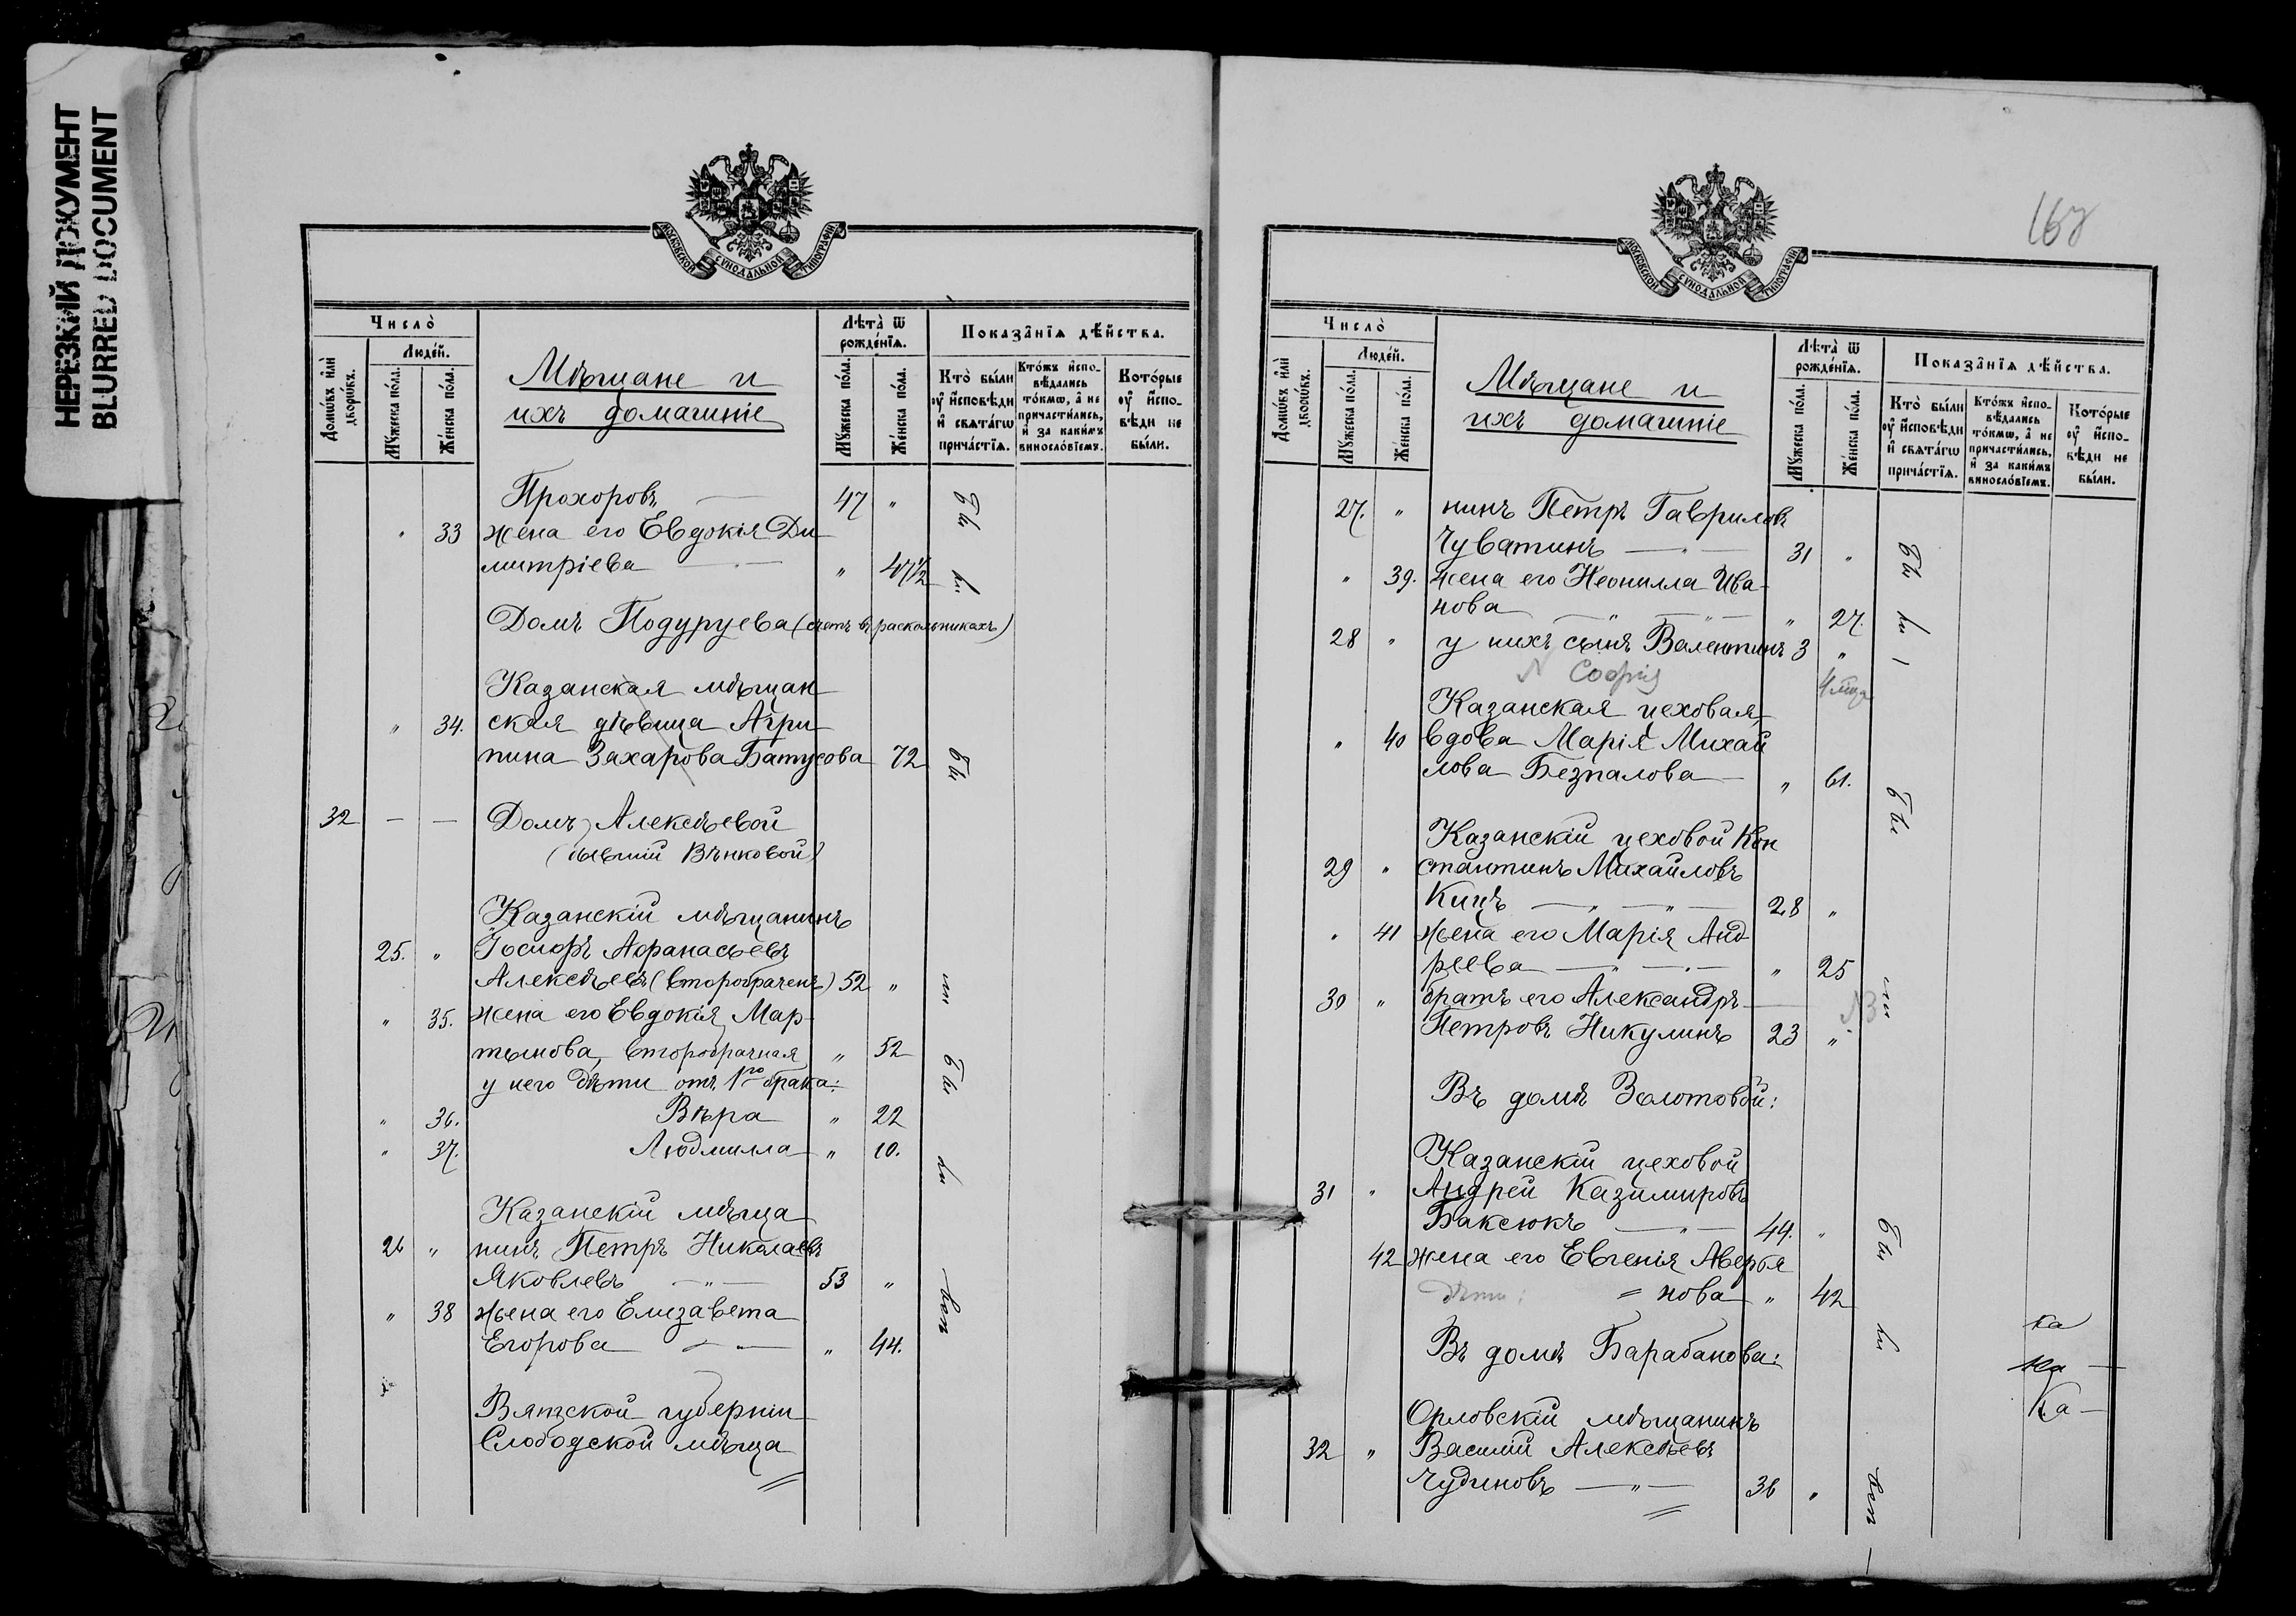 НЕРЕЗКИЙ ДОКУМЕНТ
BLURRED DOCUMENT
МОСКОВСКОЙ СѴНОДАЛЬНОЙ ТИПОГРАФІИ
Число̀
Людей.
Домѡвъ илѝ дворѡвъ.
Мꙋжеска по́ла.
Же́нска по́ла.
Мѣщане и
ихъ домашніе
Лѣта̀ ѿ рожде́нїѧ.
Мꙋжеска по́ла.
Же́нска по́ла.
Показа̂нїѧ дѣ́йства.
Кто̀ бы́ли ᲂу҆ и҆сповѣди и҆ свѧта́гѡ прича́стїѧ.
Кто́жъ и҆спо-вѣдались то́кмѡ, а҆ не причасти́лись, и҆ за каки́мъ винословїемъ.
Кото́рые ᲂу҆ и҆спо-вѣди не бы́ли.
Прохоровъ — 47 „
„ 33 жена его Евдокія Ди
митріева — „ 47½
Домъ Подуруева (счетъ въ раскольникахъ)
Казанская мѣщан
„ 34. ская дѣвица Агри
пина Захарова Батусова 72
32 — — Домъ Алексѣевой
(бывшій Вѣнковой)
Казанскій мѣщанинъ
25. „ Іосифъ Афанасьевъ
Алексѣевъ (второбраченъ) 52 „
„ 35. жена его Евдокія Мар
тынова, второбрачная „ 52
у него дѣти отъ 1го брака:
„ 36. Вѣра „ 22
„ 37. Людмилла „ 10.
Казанскій мѣща
26 „ нинъ Петръ Николаевъ
Яковлевъ — „ — 53 „
„ 38 жена его Елизавета
Егорова — „ 44.
Вятской губерніи
Слободской мѣща
=
Были
были
МОСКОВСКОЙ СѴНОДАЛЬНОЙ ТИПОГРАФІИ
Число̀
Людей.
Домѡвъ илѝ дворѡвъ.
Мꙋжеска по́ла.
Же́нска по́ла.
Мѣщане и
ихъ домашніе
Лѣта̀ ѿ рожде́нїѧ.
Мꙋжеска по́ла.
Же́нска по́ла.
Показа̂нїѧ дѣ́йства.
Кто̀ бы́ли ᲂу҆ и҆сповѣди и҆ свѧта́гѡ прича́стїѧ.
Кто́жъ и҆спо-вѣдались то́кмѡ, а҆ не причасти́лись, и҆ за каки́мъ винословїемъ.
Кото́рые ᲂу҆ и҆спо-вѣди не бы́ли.
27. „ нинъ Петръ Гавриловъ
Чуватинъ — „ — 31 „
„ 39. жена его Неонилла Ива
нова — „ — „ 27.
28 „ у нихъ сынъ Валентинъ 3 „
Софія 4 мца
Казанская цеховая
„ 40 вдова Марія Михай
лова Безпалова — „ 61.
Казанскій цеховой Кон
29 „ стантинъ Михайловъ
Кицъ — „ — „ — 28 „
„ 41 жена его Марія Анд
реева — „ — „ — „ 25
30 „ братъ его Александръ —
Петровъ Никулинъ 23 „
Въ домѣ Золотовой:
Казанскій цеховой
31 „ Андрей Казимировъ
Баксюкъ — „ — 44. „
42 жена его Евгенія Аверья
дѣти: = нова „ 42
Въ домѣ Барабанова:
Орловскій мѣщанинъ
32 „ Василій Алексѣевъ
Чудиновъ — „ — 36 „
=
ка
на —
Ка —